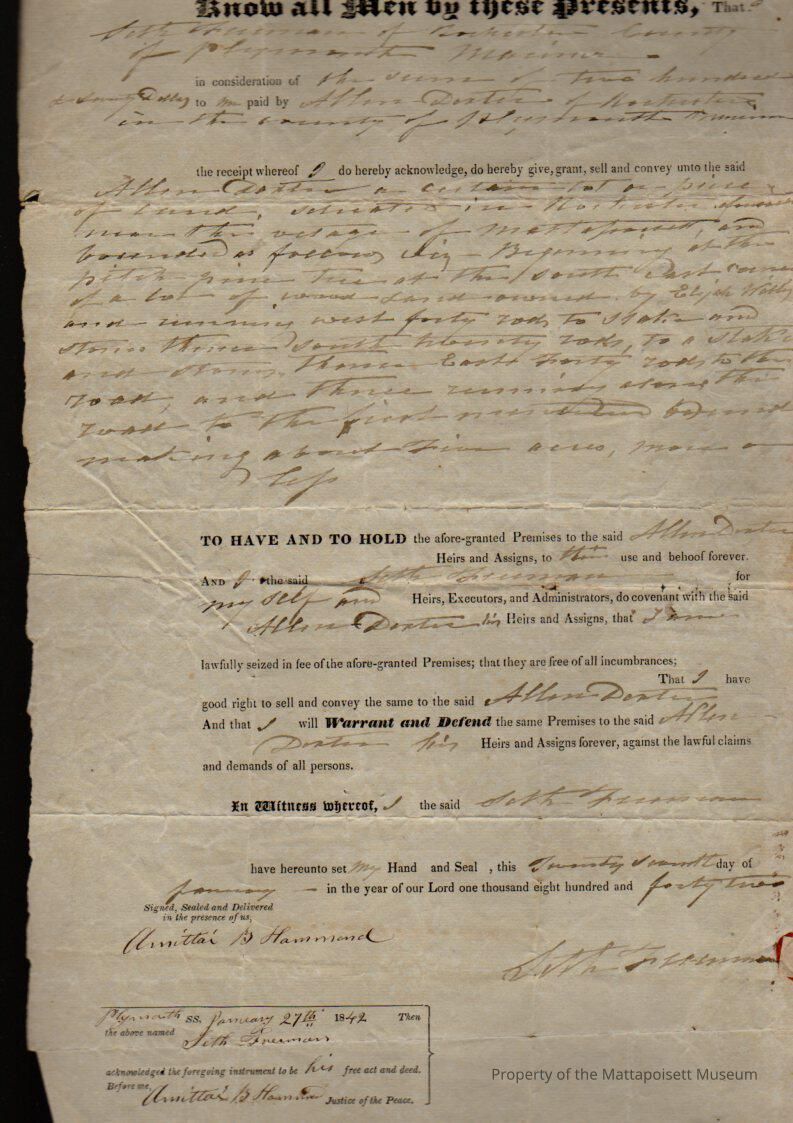 Know all Men by these Presents, That
Seth Freeman of Rochester County
of Plymouth Mariner
in consideration of the sum of two hundred
& Seventy Dollars to me paid by Allen Dexter of Rochester
in the county of Plymouth
the receipt whereof I do hereby acknowledge, do hereby give, grant, sell and convey unto the said
Allen Dexter a certain lot or piece
of land, situate in Rochester
near the village of Mattapoisett, and
bounded as follows viz - Beginning at the
pitch pine tree at the south East corner
of a lot of wood Land owned by Elijah
and running west forty rods to Stake and
stones thence South twenty rods, to a Stake
and Stones, thence East forty rods to the
road, and thence running along the
road to the first mentioned bound
making about five acres, more or
less
TO HAVE AND TO HOLD the afore-granted Premises to the said Allen Dexter
Heirs and Assigns, to their use and behoof forever.
AND I the said Seth Freeman for
my self and Heirs, Executors, and Administrators, do covenant with the said
Allen Dexter his Heirs and Assigns, that I am
lawfully seized in fee of the afore-granted Premises; that they are free of all incumbrances;
That I have
good right to sell and convey the same to the said Allen Dexter
And that I will Warrant and Defend the same Premises to the said Allen
Dexter his Heirs and Assigns forever, against the lawful claims
and demands of all persons.
In Witness whereof, I the said Seth Freeman
have hereunto set my Hand and Seal , this Twenty Seventh day of
January in the year of our Lord one thousand eight hundred and forty two
Signed, Sealed and Delivered
in the presence of us,
Amittai B Hammond
Seth Freeman
Plymouth SS. January 27th 1842 Then
the above named
Seth Freeman
acknowledged the foregoing instrument to be his free act and deed.
Before me,
Amittai B Hammond Justice of the Peace.
Property of the Mattapoisett Museum